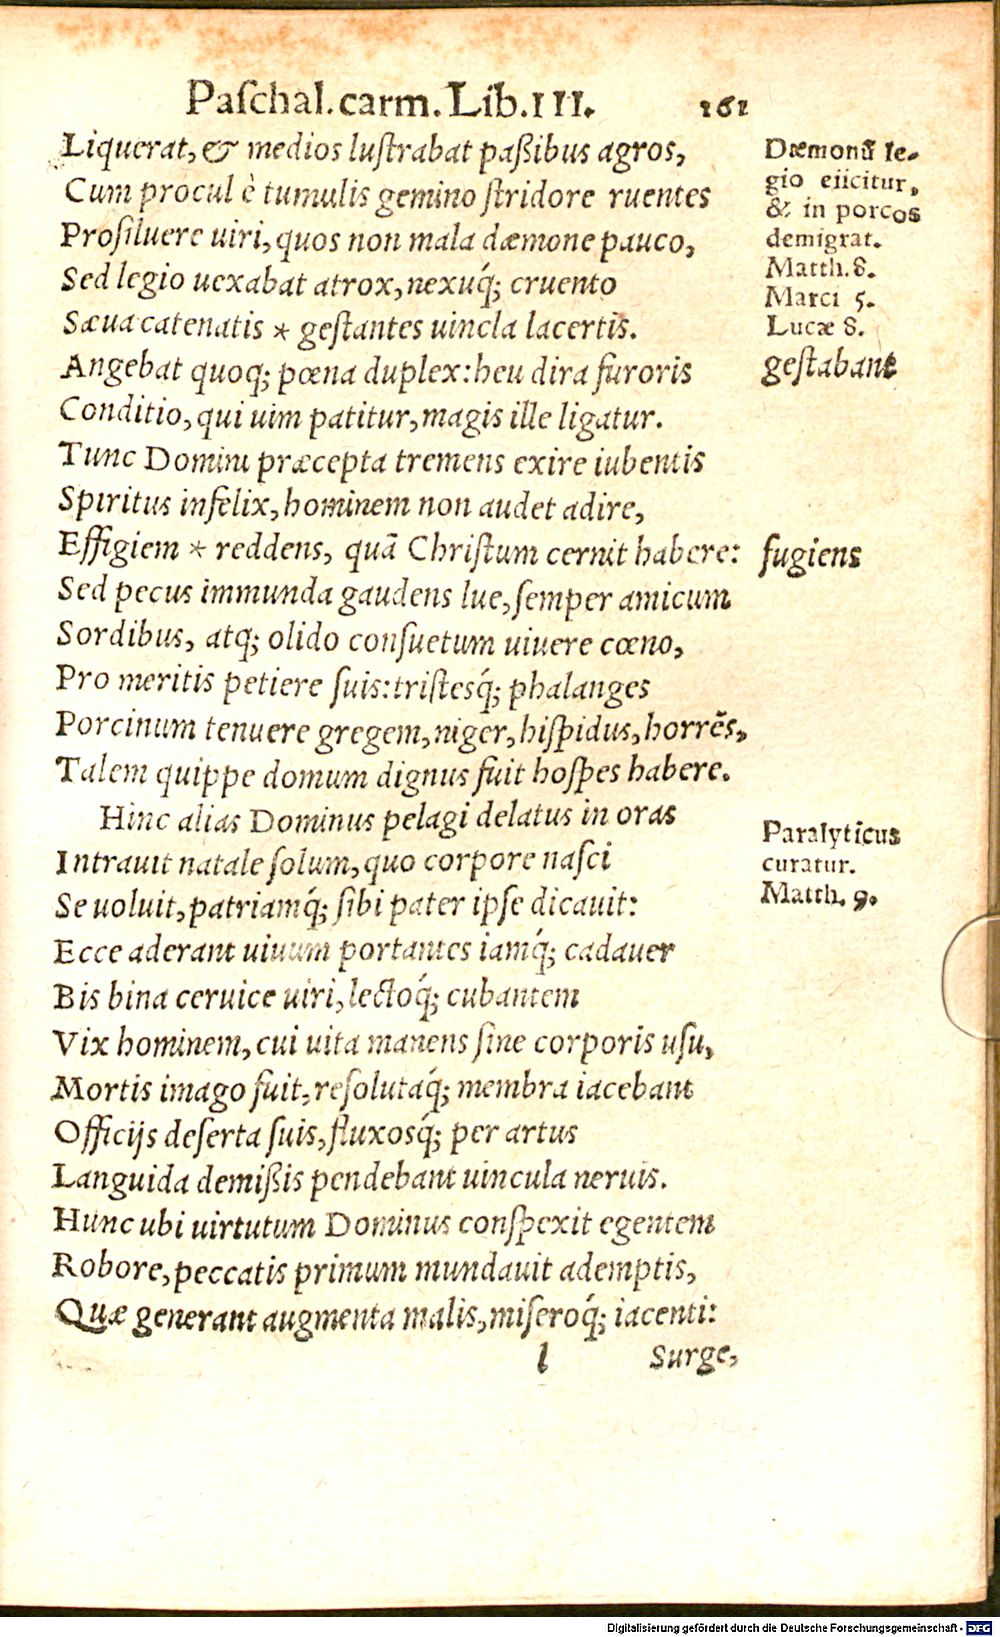 Paſchal. carm. Lib. III. 161
Liquerat, & medios luſtrabat paßibus agros,
Cum procul è tumulis gemino ſtridore ruentes
Proſiluere uiri, quos non mala dæmone pauco,
Sed legio uexabat atrox, nexuq́; cruento
Sæua catenatis * geſtantes uincla lacertis.
Angebat quoq; pœna duplex: heu dira furoris
Conditio, qui uim patitur, magis ille ligatur.
Tunc Domini præcepta tremens exire iubentis
Spiritus infelix, hominem non audet adire,
Effigiem * reddens, quā Chriſtum cernit habere:
Sed pecus immunda gaudens lue, ſemper amicum
Sordibus, atq; olido conſuetum uiuere cœno,
Pro meritis petiere ſuis: triſtesq́; phalanges
Porcinum tenuere gregem, niger, hiſpidus, horrēs,
Talem quippe domum dignus fuit hoſpes habere.
Hinc alias Dominus pelagi delatus in oras
Intrauit natale ſolum, quo corpore naſci
Se uoluit, patriamq́; ſibi pater ipſe dicauit:
Ecce aderant uiuum portantes iamq́; cadauer
Bis bina ceruice uiri, lectoq́; cubantem
Vix hominem, cui uita manens ſine corporis uſu,
Mortis imago fuit, reſolutaq́; membra iacebant
Officijs deſerta ſuis, fluxosq́; per artus
Languida demißis pendebant uincula neruis.
Hunc ubi uirtutum Dominus conſpexit egentem
Robore, peccatis primum mundauit ademptis,
Quæ generant augmenta malis, miſeroq́; iacenti:
l Surge,
Dæmonū le-
gio eiicitur,
& in porcos
demigrat.
Matth. 8.
Marci 5.
Lucæ 8.
geſtabant
fugiens
Paralyticus
curatur.
Matth. 9.
Digitalisierung gefördert durch die Deutsche Forschungsgemeinschaft - DFG